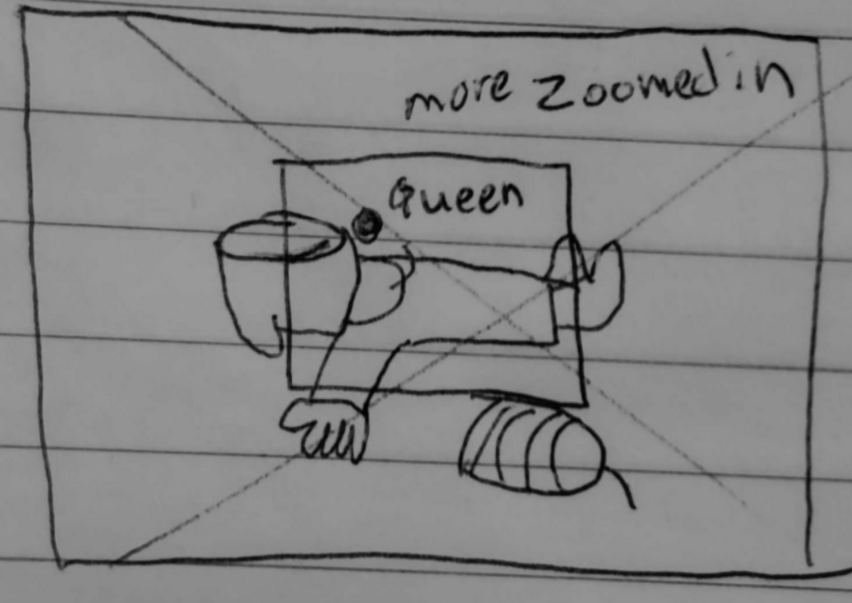 more zoomed in
Queen